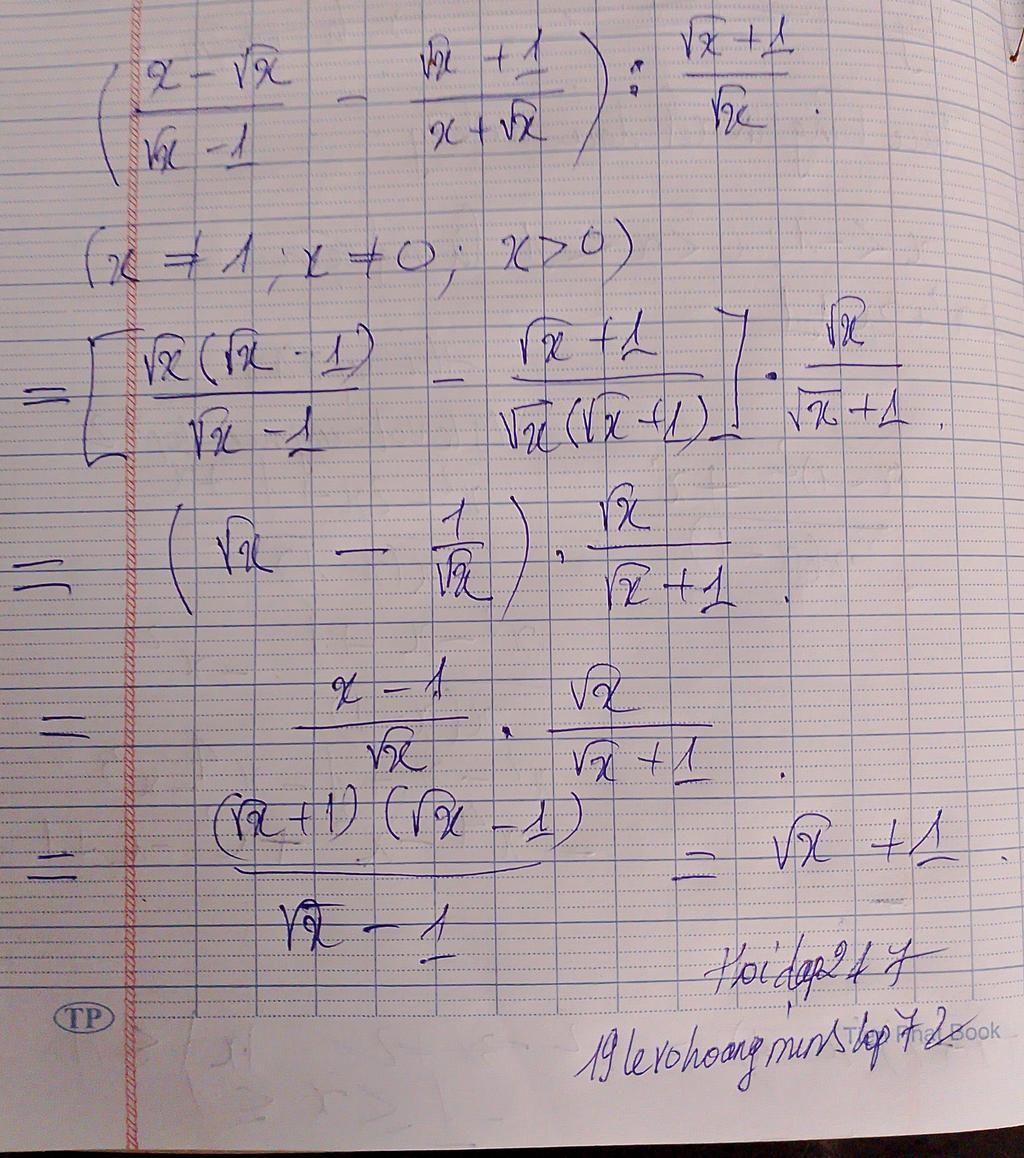 ( (x - √x)/(√x - 1) - (√x + 1)/(x + √x) ) : (√x + 1)/√x .
(x ≠ 1 ; x ≠ 0 ; x > 0)
= [ √x(√x - 1)/(√x - 1) - (√x + 1)/(√x(√x + 1)) ] . √x/(√x + 1) .
= ( √x - 1/√x ) . √x/(√x + 1) .
= (x - 1)/√x . √x/(√x + 1) .
= (√x + 1)(√x - 1)/(√x - 1) = √x + 1 .
Hoidap247
19levohoangminhlop72
TP
Book